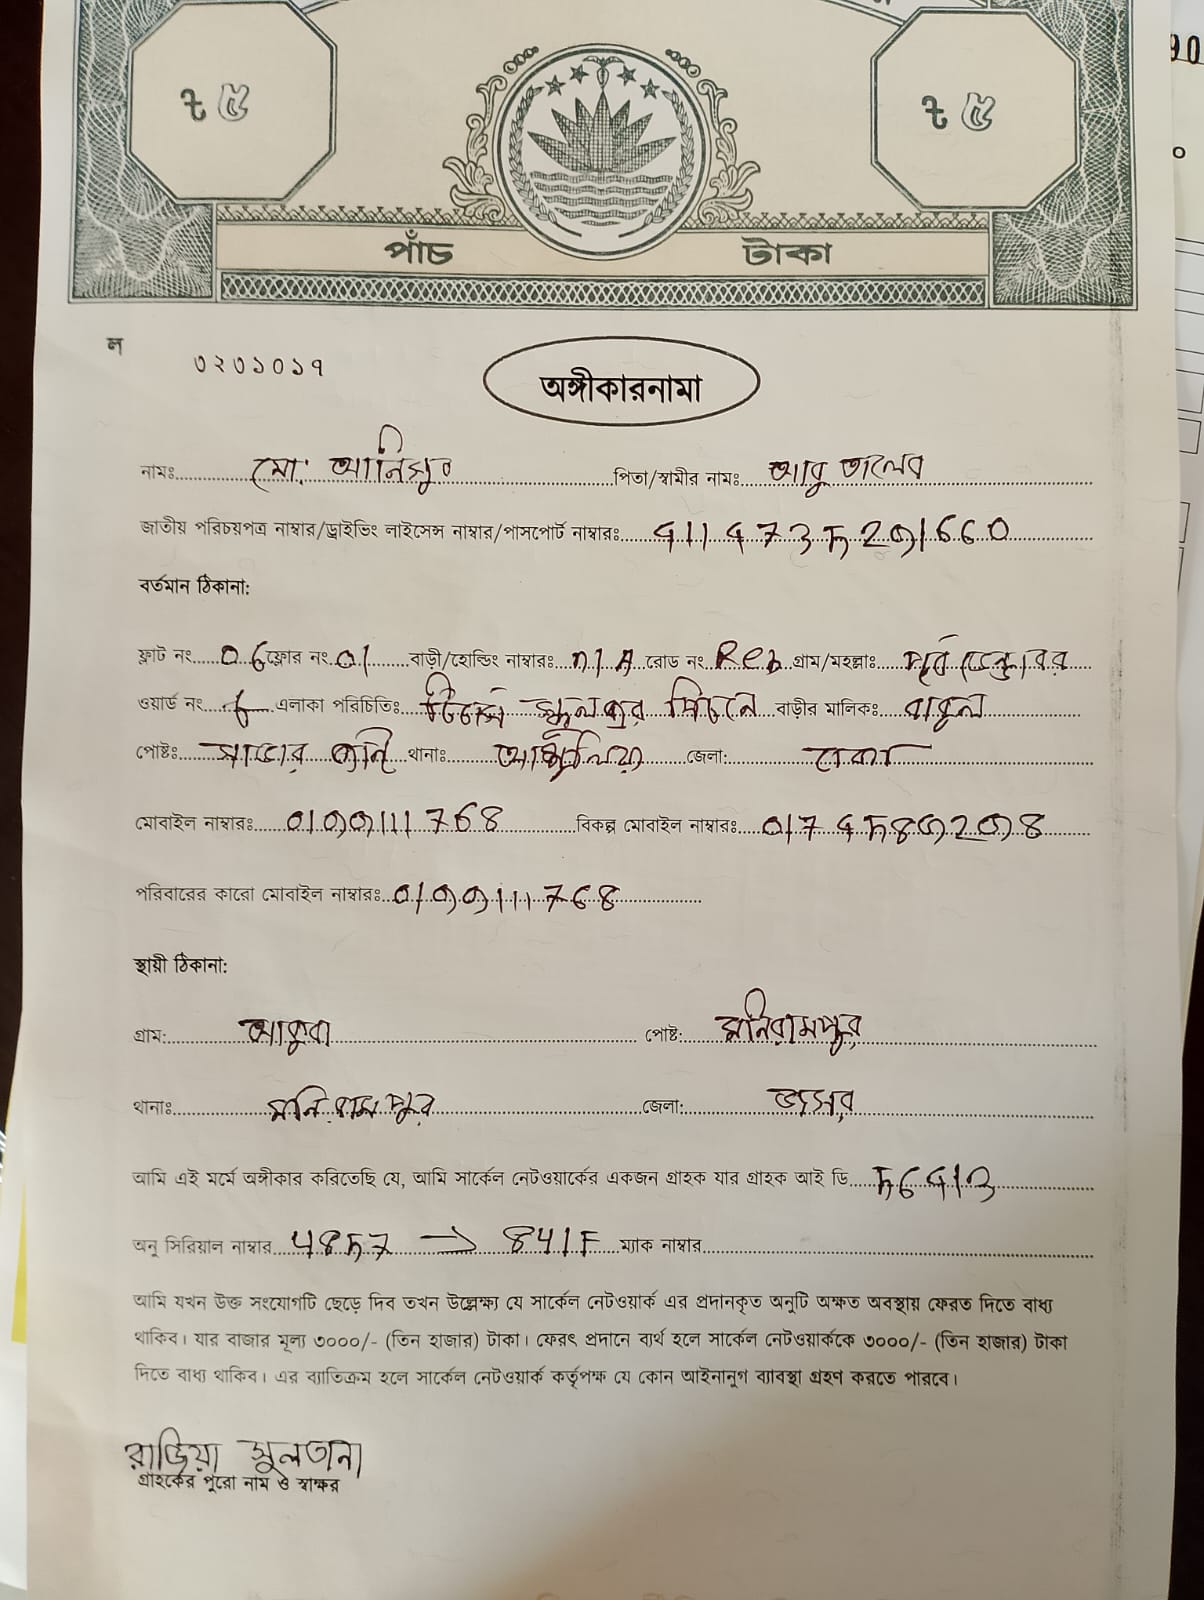 ৳ ৫ ৳ ৫
পাঁচ টাকা
ল ৩২৩১০১৭
অঙ্গীকারনামা
নামঃ মো: আনিসুর পিতা/স্বামীর নামঃ আবু তালেব
জাতীয় পরিচয়পত্র নাম্বার/ড্রাইভিং লাইসেন্স নাম্বার/পাসপোর্ট নাম্বারঃ
বর্তমান ঠিকানা:
ফ্লাট নং 06 ফ্লোর নং 01 বাড়ী/হোল্ডিং নাম্বারঃ n/A রোড নং গ্রাম/মহল্লাঃ
ওয়ার্ড নং 6 এলাকা পরিচিতিঃ পিচনে বাড়ীর মালিকঃ বাবুল
পোষ্টঃ সাভার থানাঃ আশুলিয়া জেলা: ঢাকা
মোবাইল নাম্বারঃ বিকল্প মোবাইল নাম্বারঃ
পরিবারের কারো মোবাইল নাম্বারঃ
স্থায়ী ঠিকানা:
গ্রাম: পোষ্ট: মনিরামপুর
থানাঃ মনিরামপুর জেলা: যশোর
আমি এই মর্মে অঙ্গীকার করিতেছি যে, আমি সার্কেল নেটওয়ার্কের একজন গ্রাহক যার গ্রাহক আই ডি
অনু সিরিয়াল নাম্বার 4857 → 841F ম্যাক নাম্বার
আমি যখন উক্ত সংযোগটি ছেড়ে দিব তখন উল্লেক্ষ্য যে সার্কেল নেটওয়ার্ক এর প্রদানকৃত অনুটি অক্ষত অবস্থায় ফেরত দিতে বাধ্য
থাকিব। যার বাজার মূল্য ৩০০০/- (তিন হাজার) টাকা। ফেরৎ প্রদানে ব্যর্থ হলে সার্কেল নেটওয়ার্ককে ৩০০০/- (তিন হাজার) টাকা
দিতে বাধ্য থাকিব। এর ব্যাতিক্রম হলে সার্কেল নেটওয়ার্ক কর্তৃপক্ষ যে কোন আইনানুগ ব্যাবস্থা গ্রহণ করতে পারবে।
রাজিয়া সুলতানা
গ্রাহকের পুরো নাম ও স্বাক্ষর